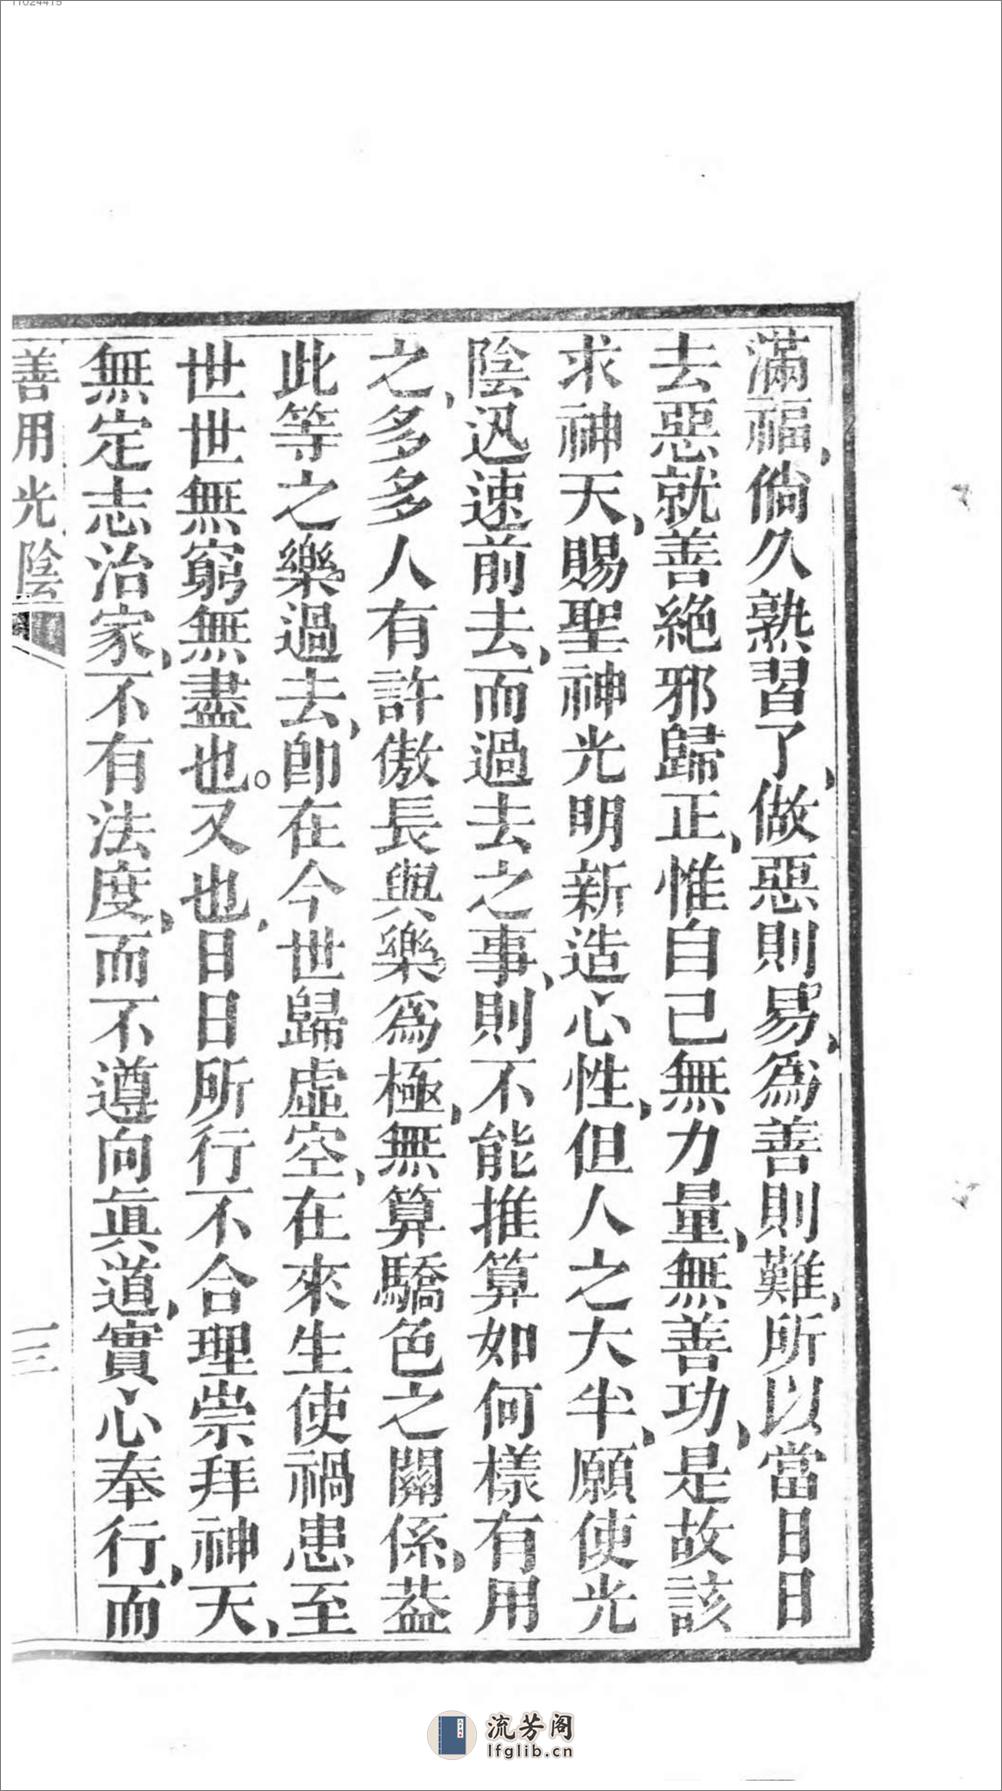 滿福，倘久熟習了，做惡則易，為善則難，所以當日日
去惡就善絕邪歸正，惟自己無力量，無善功，是故該
求神天，賜聖神光明新造心性，但人之大半，願使光
陰迅速前去，而過去之事，則不能推算如何樣有用
之，多多人有許傲長與樂為極，無算驕色之關係，葢
此等之樂過去，卽在今世歸虛空，在來生使禍患至
世世無窮無盡也。又也，日日所行不合理崇拜神天，
無定志治家，不有法度，而不遵向眞道，實心奉行，而
善用光陰
三
流芳阁
lfglib.cn